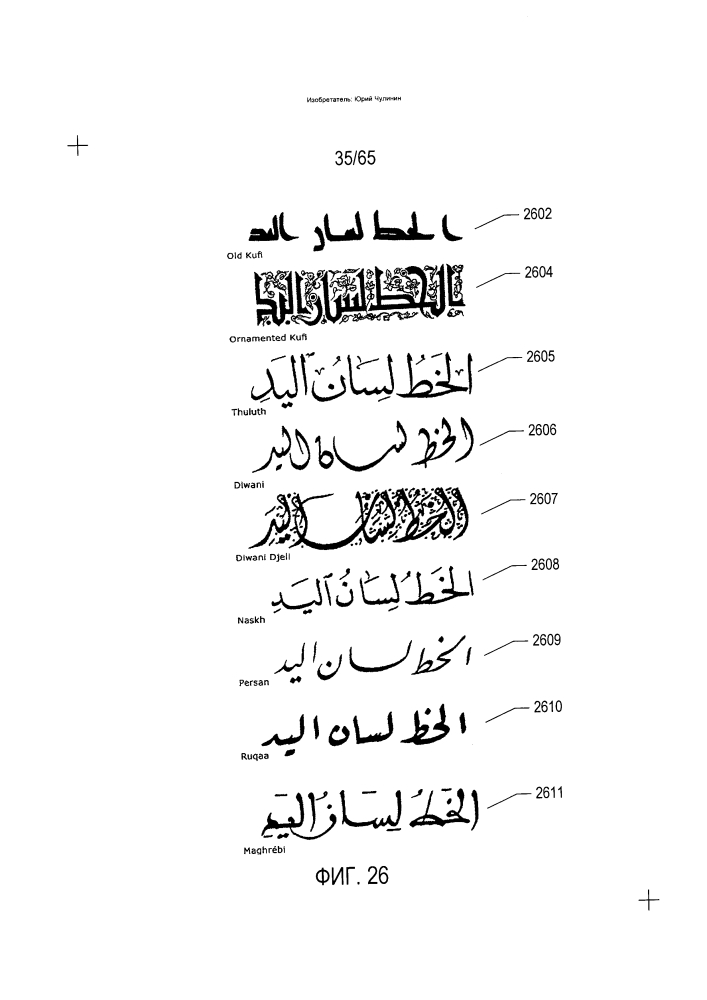 Изобретатель: Юрий Чулинин
35/65
الخط لسان اليد 2602
Old Kufi
الخط لسان اليد 2604
Ornamented Kufi
الخَطُ لِسَانُ اليَدِ 2605
Thuluth
الخط لسان اليد 2606
Diwani
الخط لسان اليد 2607
Diwani Djeli
الخَطُ لِسَانُ اليَدِ 2608
Naskh
الخط لسان اليد 2609
Persan
الخط لسان اليد 2610
Ruqaa
الخَطُ لِسَانُ اليَدِ 2611
Maghrébi
ФИГ. 26